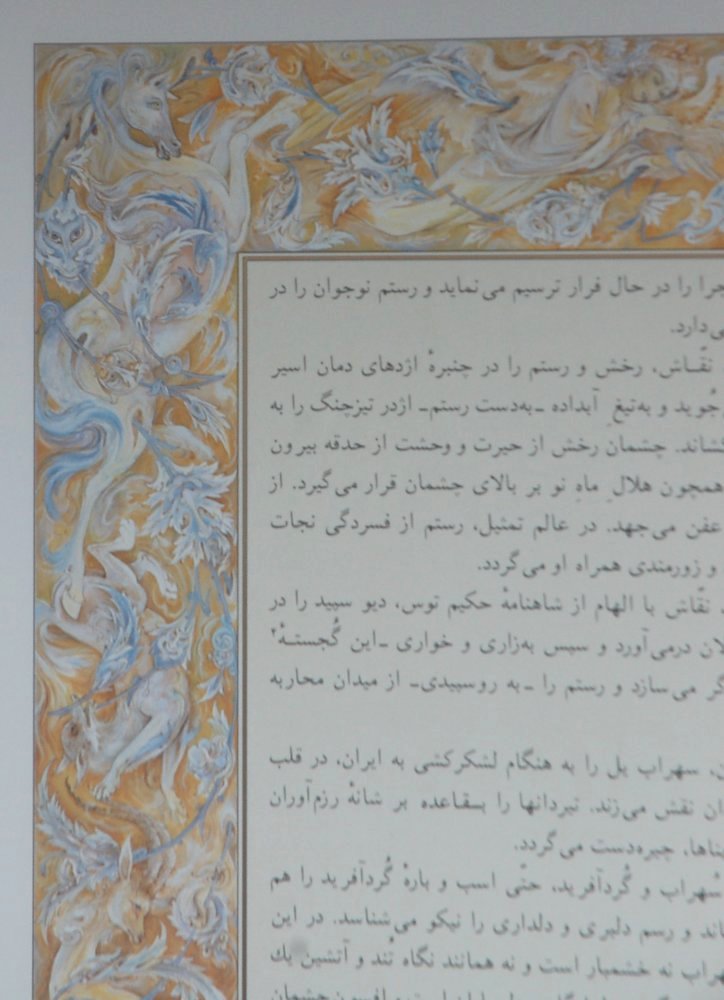 را در حال فرار ترسیم می‌نماید و رستم نوجوان را در
ی‌دارد.
نقّاش، رخش و رستم را در چنبرهٔ اژدهای دمان اسیر
جوید و به‌تیغِ آبداده ـ به‌دست رستم ـ اژدر تیزچنگ را به
چشمان رخش از حیرت و وحشت از حدقه بیرون
همچون هلالِ ماهِ نو بر بالای چشمان قرار می‌گیرد. از
عفن می‌جهد. در عالم تمثیل، رستم از فسردگی نجات
و زورمندی همراه او می‌گردد.
نقّاش با الهام از شاهنامهٔ حکیم توس، دیو سپید را در
درمی‌آورد و سپس به‌زاری و خواری ـ این گُجستهٔ۲
گر می‌سازد و رستم را ـ به روسپیدی ـ از میدان محاربه
سهراب یل را به هنگام لشکرکشی به ایران، در قلب
نقش می‌زند. تیردانها را بسقاعده بر شانهٔ رزم‌آوران
چیره‌دست می‌گردد.
سُهراب و گُردآفرید، حتّی اسب و بارهٔ گُردآفرید را هم
و رسم دلبری و دلداری را نیکو می‌شناسد. در این
نه خشمبار است و نه همانند نگاه تُند و آتشین یك